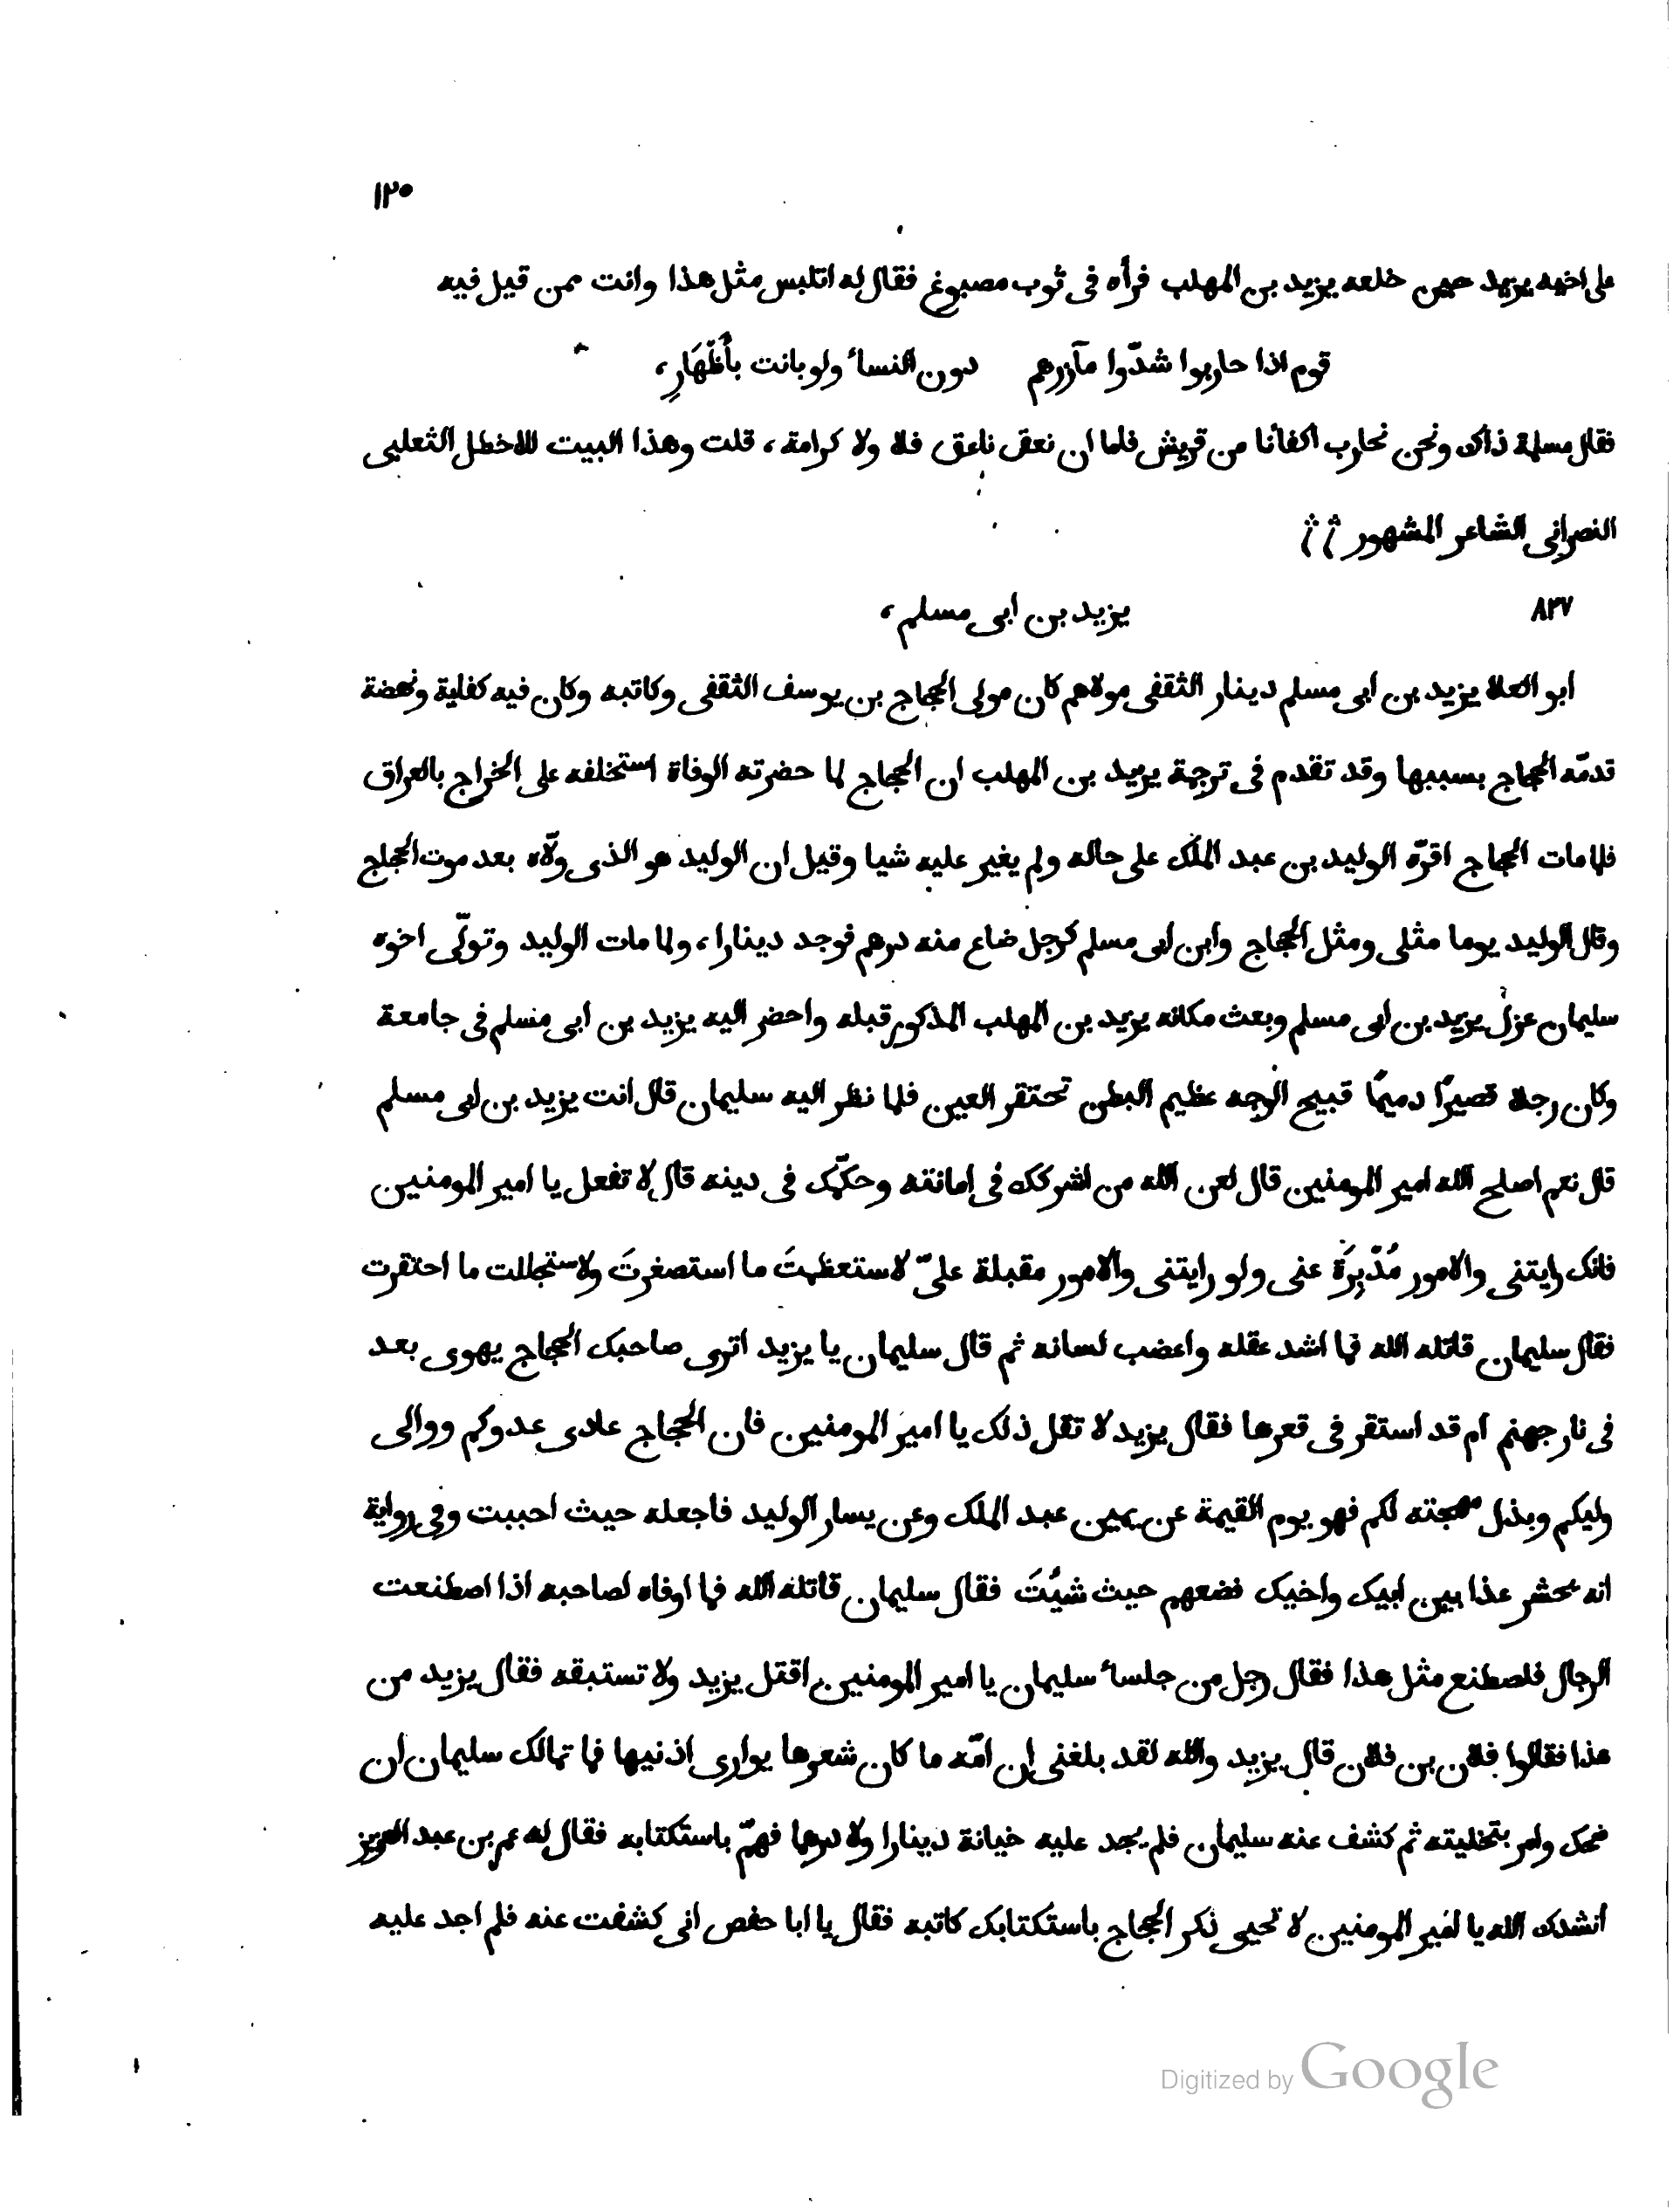 ١٢٥
على اخيه يزيد حين خلعه يزيد بن المهلب فرأه فى ثوب مصبوغ فقال له اتلبس مثل هذا وانت ممن قيل فيه
قوم اذا حاربوا شدّوا مآزرهم دون النساء ولو بانت بأَظْهَارِ،
فقال مسلمة ذاك ونحن نحارب اكفانا من قريش فاما ان نعق ناعق فلا ولا كرامة، قلت وهذا البيت للاخطل الثعلبى
النصرانى الشاعر المشهور
٨٢٧ يزيد بن ابى مسلم،
ابو العلا يزيد بن ابى مسلم دينار الثقفى مولاهم كان مولى الحجاج بن يوسف الثقفى وكاتبه وكان فيه كفاية ونهضة
قدمّه الحجاج بسببها وقد تقدم فى ترجمة يزيد بن المهلب ان الحجاج لما حضرته الوفاة استخلفه على الخراج بالعراق
فلما مات الحجاج اقرّه الوليد بن عبد الملك على حاله ولم يغير عليه شيا وقيل ان الوليد هو الذى ولّاه بعد موت الحجاج
وقال الوليد يوما مثلى ومثل الحجاج وابن ابى مسلم كرجل ضاع منه درهم فوجد دينارا، ولما مات الوليد وتولّى اخوه
سليمان عزل يزيد بن ابى مسلم وبعث مكانه يزيد بن المهلب المذكور قبله واحضر اليه يزيد بن ابى مسلم فى جامعة
وكان رجلا قصيرًا دميمًا قبيح الوجه عظيم البطن تحتقر العين فلما نظر اليه سليمان قال انت يزيد بن ابى مسلم
قال نعم اصلح الله امير المومنين قال لعن الله من اشركك فى امانته وحكّمك فى دينه قال لا تفعل يا امير المومنين
فانك رايتنى والامور مُدْبِرَة عنى ولو رايتنى والامور مقبلة علىّ لاستعظمتَ ما استصغرتَ ولاستجللت ما احتقرت
فقال سليمان قاتله الله فما اشد عقله واعضب لسانه ثم قال سليمان يا يزيد اترى صاحبك الحجاج يهوى بعد
فى نار جهنم ام قد استقر فى قعرها فقال يزيد لا تقل ذلك يا امير المومنين فان الحجاج عادى عدوكم ووالى
وليكم وبذل مهجته لكم فهو يوم القيمة عن يمين عبد الملك وعن يسار الوليد فاجعله حيث احببت وفى رواية
انه يحشر غدا بين ابيك واخيك فضعهم حيث شيْتَ فقال سليمان قاتله الله فما اوفاه لصاحبه اذا اصطنعت
الرجال فلصطنع مثل هذا فقال رجل من جلساء سليمان يا امير المومنين اقتل يزيد ولا تستبقه فقال يزيد من
هذا فقالوا فلان بن فلان قال يزيد والله لقد بلغنى ان امّه ما كان شعرها يوارى اذنيها فما تمالك سليمان ان
ضحك وامر بتخليته ثم كشف عنه سليمان فلم يجد عليه خيانة دينارا ولا درهما فهمّ باستكتابه فقال له عمر بن عبد العزيز
انشدك الله يا امير المومنين لا تحيى ذكر الحجاج باستكتابك كاتبه فقال يا ابا حفص انى كشفت عنه فلم اجد عليه
Digitized by Google